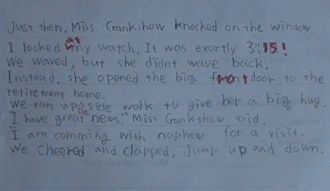 Just then, Miss Crankshow knocked on the window.
I looked at my watch. It was exartly 3:15!
We waved, but she didnt wave back.
Instead, she opened the big front door to the
retirement home.
We ran up side walk to give her a big hug.
"I have great news," Miss Crankshow said,
I am comming with nophew for a visit.
We cheered and clapped, jump up and down.